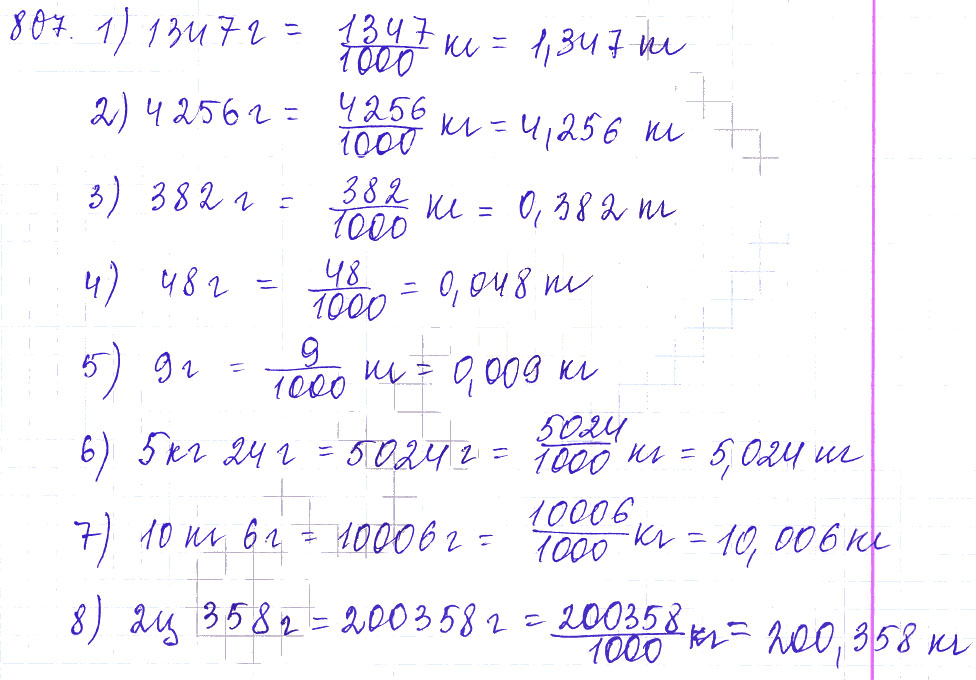 807. 1) 1347 г = 1347/1000 кг = 1,347 кг
2) 4256 г = 4256/1000 кг = 4,256 кг
3) 382 г = 382/1000 кг = 0,382 кг
4) 48 г = 48/1000 = 0,048 кг
5) 9 г = 9/1000 кг = 0,009 кг
6) 5 кг 24 г = 5024 г = 5024/1000 кг = 5,024 кг
7) 10 кг 6 г = 10006 г = 10006/1000 кг = 10,006 кг
8) 2 ц 358 г = 200358 г = 200358/1000 кг = 200,358 кг